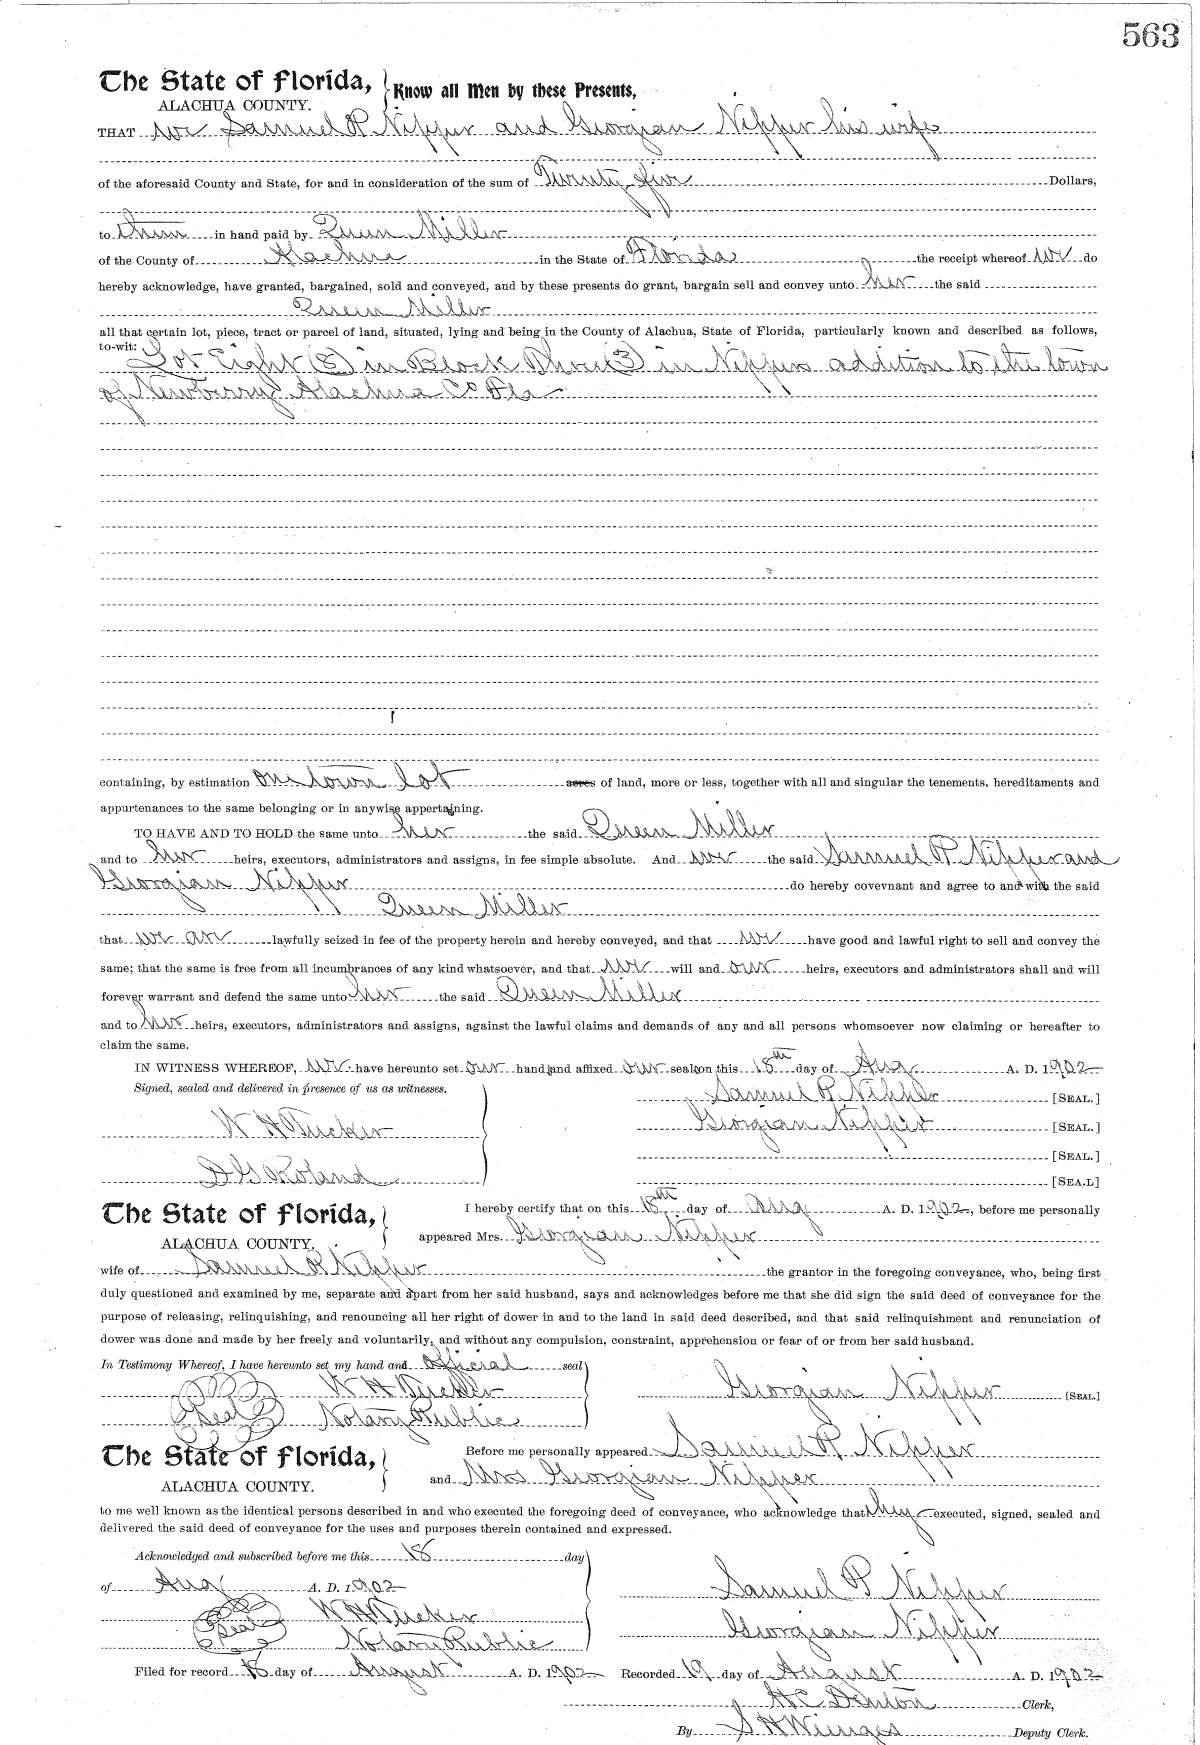 563
The State of Florida, Know all Men by these Presents,
ALACHUA COUNTY.
THAT we Samuel P Nipper and Georgian Nipper his wife
of the aforesaid County and State, for and in consideration of the sum of Twenty five Dollars,
to them in hand paid by Queen Miller
of the County of Alachua in the State of Florida the receipt whereof we do
hereby acknowledge, have granted, bargained, sold and conveyed, and by these presents do grant, bargain sell and convey unto her the said
Queen Miller
all that certain lot, piece, tract or parcel of land, situated, lying and being in the County of Alachua, State of Florida, particularly known and described as follows,
to-wit: Lot Eight (8) in Block Three (3) in Nippers addition to the town
of Newberry Alachua Co Fla
containing, by estimation one town lot acres of land, more or less, together with all and singular the tenements, hereditaments and
appurtenances to the same belonging or in anywise appertaining.
TO HAVE AND TO HOLD the same unto her the said Queen Miller
and to her heirs, executors, administrators and assigns, in fee simple absolute. And we the said Samuel P Nipper and
Georgian Nipper do hereby covevnant and agree to and with the said
Queen Miller
that we are lawfully seized in fee of the property herein and hereby conveyed, and that we have good and lawful right to sell and convey the
same; that the same is free from all incumbrances of any kind whatsoever, and that we will and our heirs, executors and administrators shall and will
forever warrant and defend the same unto her the said Queen Miller
and to her heirs, executors, administrators and assigns, against the lawful claims and demands of any and all persons whomsoever now claiming or hereafter to
claim the same.
IN WITNESS WHEREOF, we have hereunto set our hand and affixed our seal on this 18th day of Aug A. D. 1902
Signed, sealed and delivered in presence of us as witnesses. Samuel P. Nipper [SEAL.]
W H Tucker Georgian Nipper [SEAL.]
[SEAL.]
D G Roland [SEA.L]
The State of Florida, I hereby certify that on this 18th day of Aug A. D. 1902, before me personally
ALACHUA COUNTY. appeared Mrs. Georgian Nipper
wife of Samuel P Nipper the grantor in the foregoing conveyance, who, being first
duly questioned and examined by me, separate and apart from her said husband, says and acknowledges before me that she did sign the said deed of conveyance for the
purpose of releasing, relinquishing, and renouncing all her right of dower in and to the land in said deed described, and that said relinquishment and renunciation of
dower was done and made by her freely and voluntarily, and without any compulsion, constraint, apprehension or fear of or from her said husband.
In Testimony Whereof, I have hereunto set my hand and official seal
W H Tucker Georgian Nipper [SEAL]
Seal Notary Public
The State of Florida, Before me personally appeared Samuel P Nipper
ALACHUA COUNTY. and Mrs Georgian Nipper
to me well known as the identical persons described in and who executed the foregoing deed of conveyance, who acknowledge that they executed, signed, sealed and
delivered the said deed of conveyance for the uses and purposes therein contained and expressed.
Acknowledged and subscribed before me this 18 day
of Aug A. D. 1902 Samuel P Nipper
Seal W H Tucker Georgian Nipper
Notary Public
Filed for record 18 day of August A. D. 1902 Recorded 19 day of August A. D. 1902
H C Denton Clerk,
By S H Wienges Deputy Clerk.